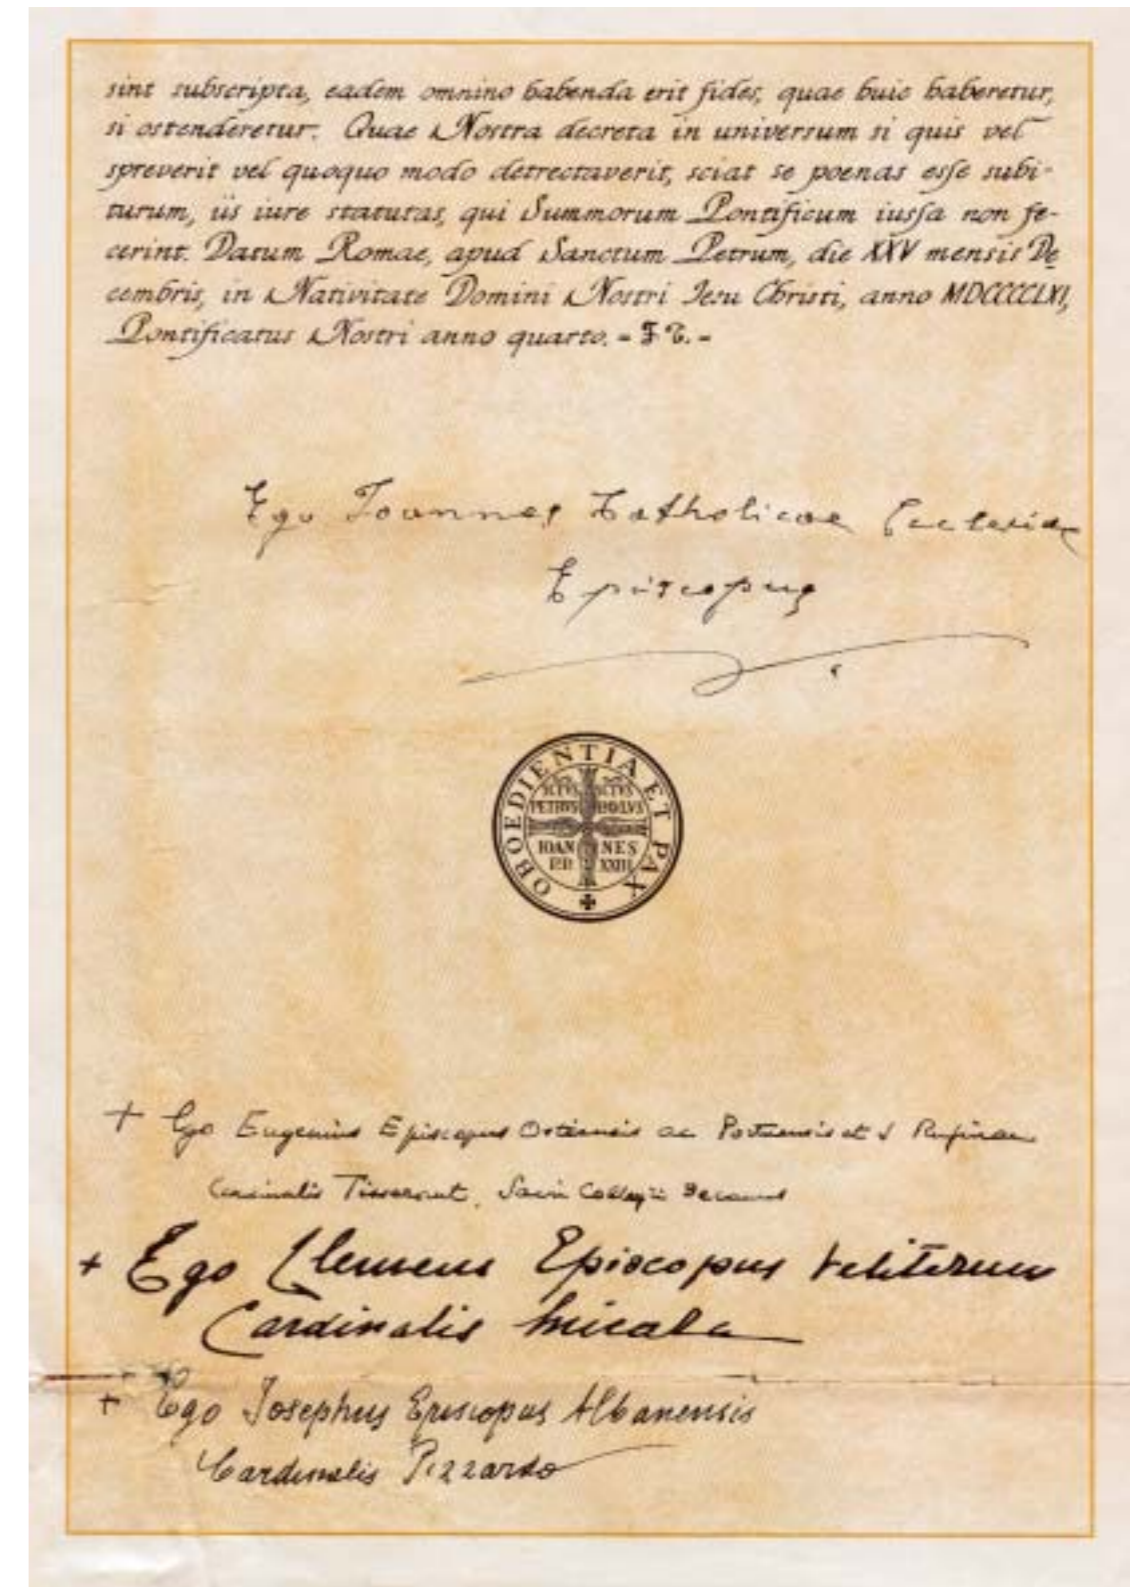 sint subscripta, eadem omnino habenda erit fides, quae huic haberetur,
si ostenderetur. Quae Nostra decreta in universum si quis vel
spreverit vel quoquo modo detrectaverit, sciat se poenas esse subi-
turum, iis iure statutas, qui Summorum Pontificum iussa non fe-
cerint. Datum Romae, apud Sanctum Petrum, die XXV mensis De
cembris, in Nativitate Domini Nostri Iesu Christi, anno MDCCCCLXI,
Pontificatus Nostri anno quarto. - F T. -
Ego Ioannes Catholicae Ecclesiae
Episcopus
OBOEDIENTIA ET PAX
SCTVS SCTVS
PETRVS PAOLVS
IOAN NES
P.P. XXIII
+ Ego Eugenius Episcopus Ostiensis ac Portuensis et S Rufinae
Cardinalis Tisserant, Sacri Collegii Decanus
+ Ego Clemens Episcopus Veliternus
Cardinalis Micara
+ Ego Josephus Episcopus Albanensis
Cardinalis Pizzardo